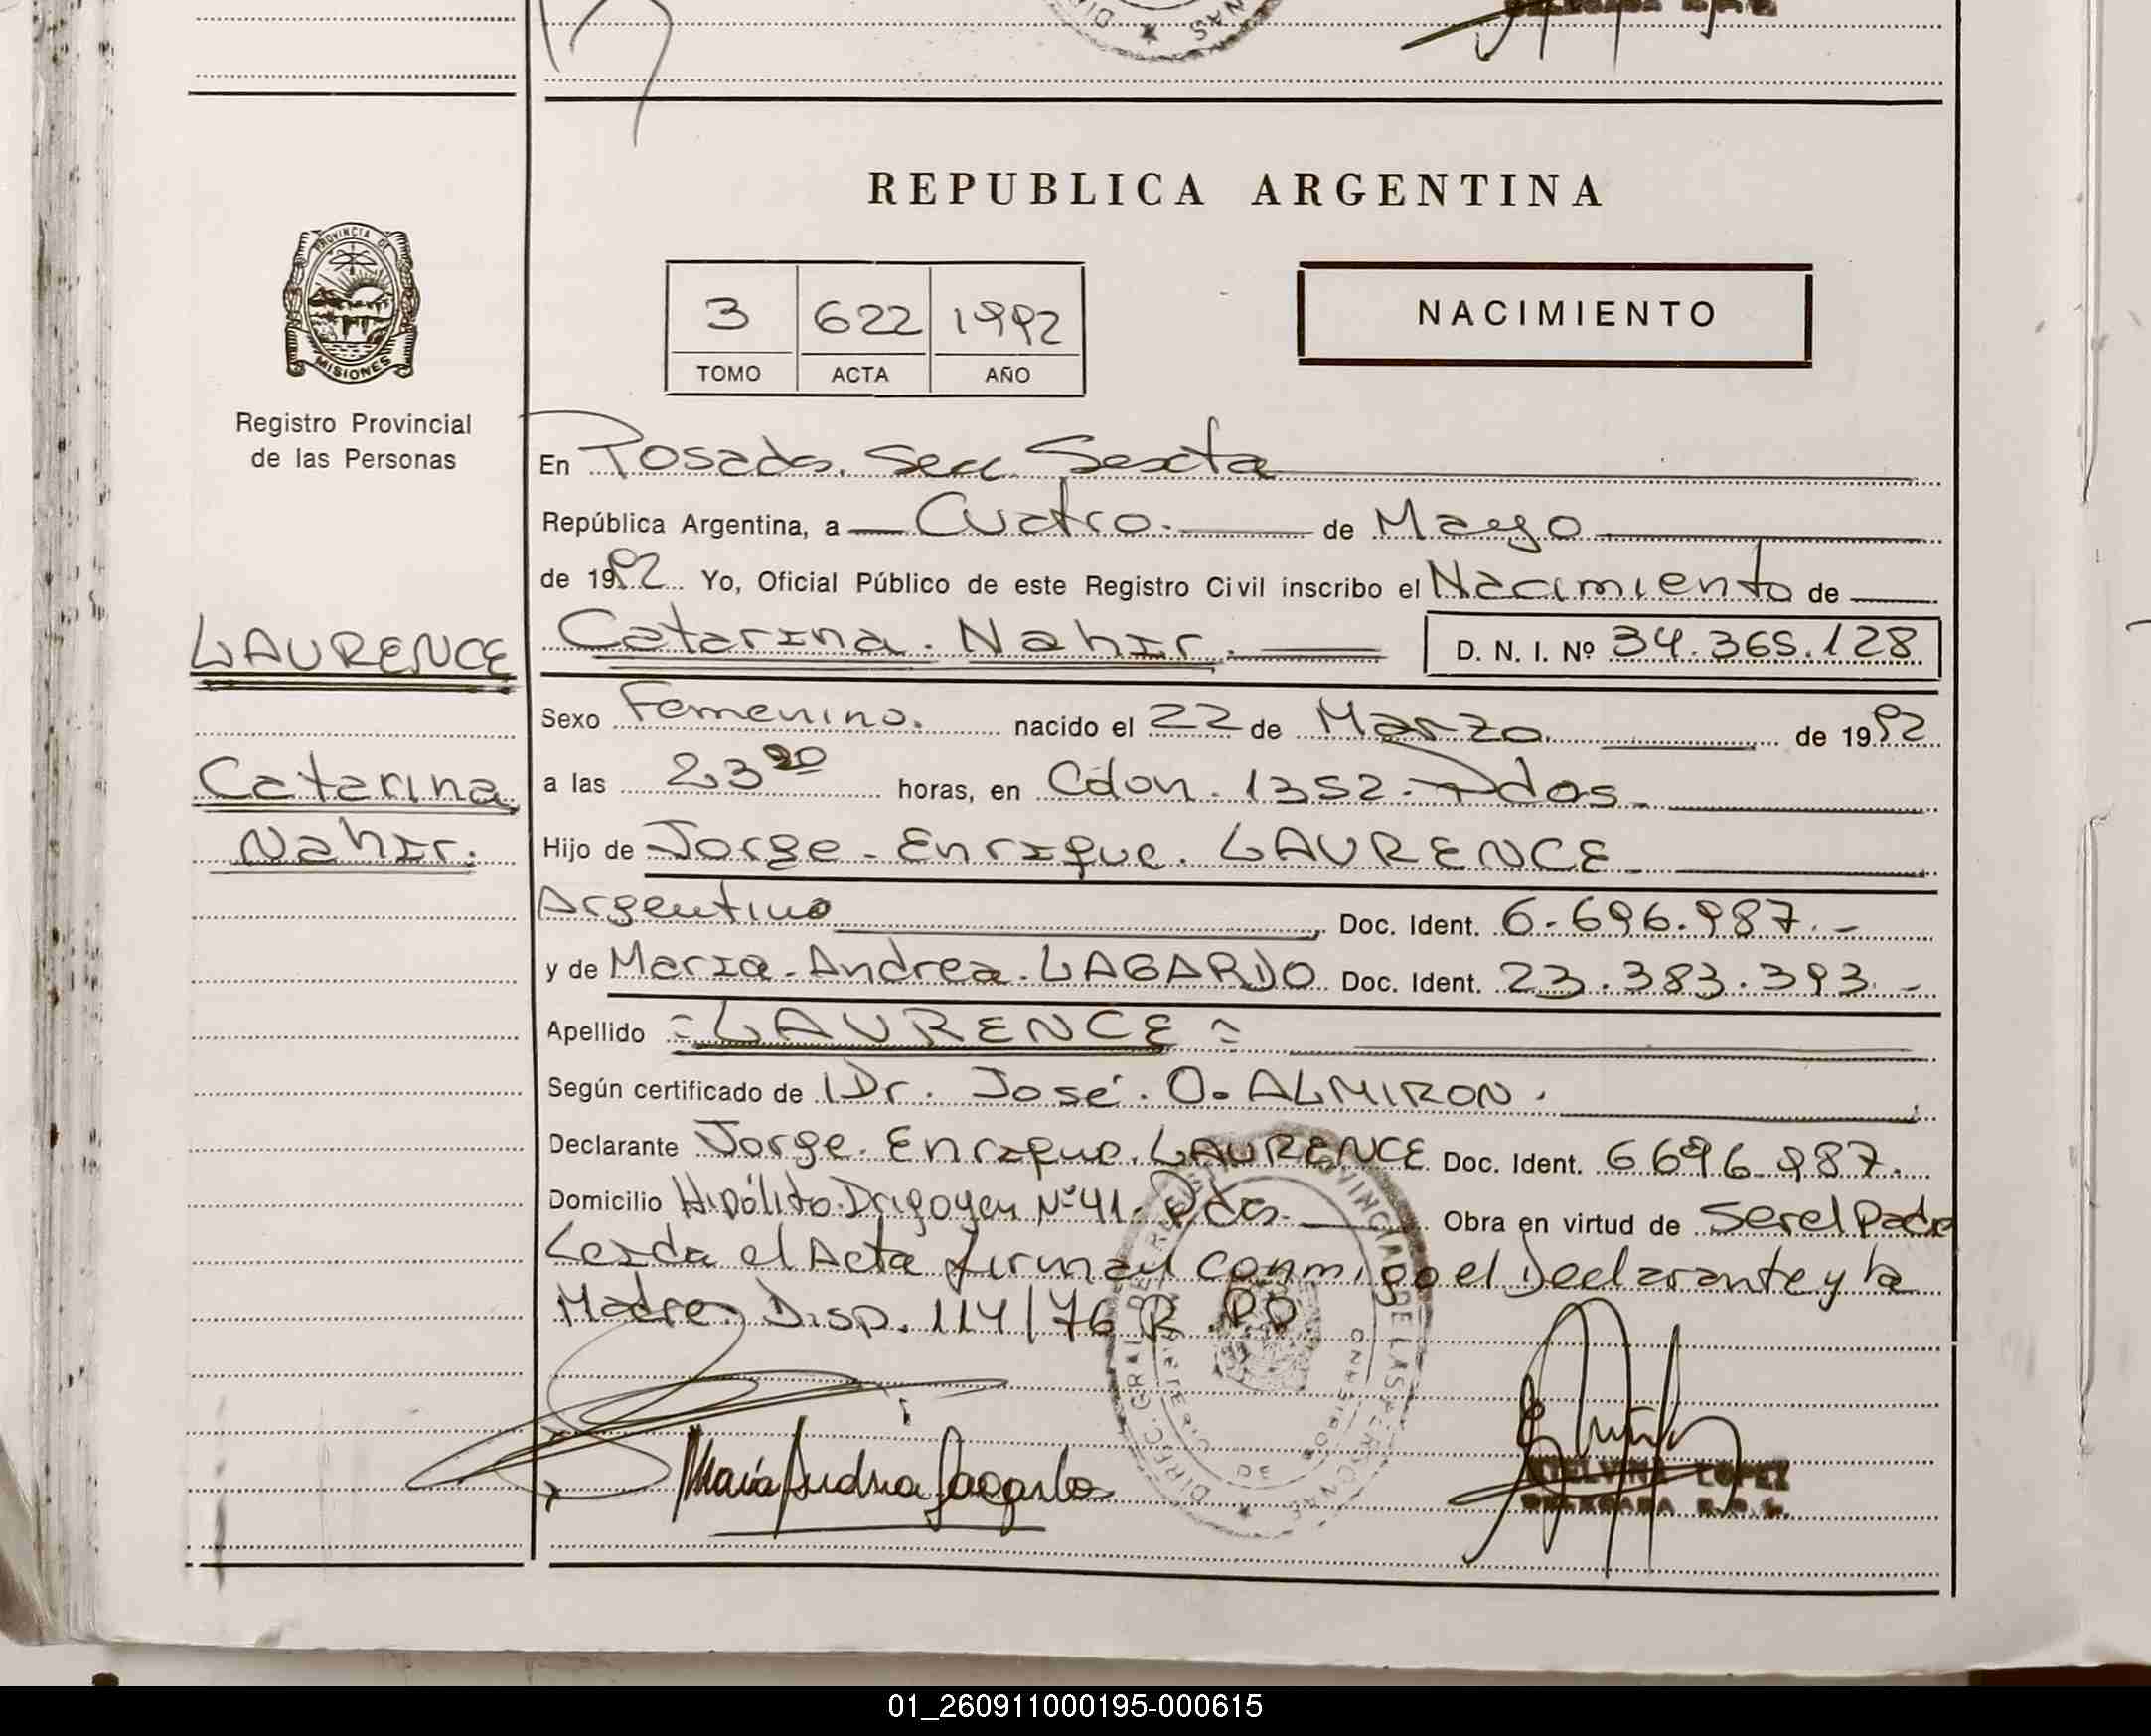 REPUBLICA ARGENTINA
PROVINCIA DE
MISIONES
Registro Provincial
de las Personas
3 622 1992
TOMO ACTA AÑO
NACIMIENTO
En Posadas. Secc. Sexta
República Argentina, a Cuatro. de Mayo
de 1992 Yo, Oficial Público de este Registro Civil inscribo el Nacimiento de
Catarina. Nahir. D. N. I. Nº 34.365.128
LAURENCE
Catarina
Nahir.
Sexo Femenino. nacido el 22 de Marzo de 1992
a las 23 horas, en Cdon. 1352. Pdas.
Hijo de Jorge. Enrique. LAURENCE
Argentino Doc. Ident. 6.696.987.-
y de Maria. Andrea. LAGARDO Doc. Ident. 23.383.393.-
Apellido =LAURENCE=
Según certificado de Dr. José. O. ALMIRON.
Declarante Jorge. Enrique. LAURENCE Doc. Ident. 6696987.
Domicilio Hipólito Yrigoyen Nº 41. Pdas. Obra en virtud de Ser el Padre
Leida el Acta firman conmigo el Declarante y la
Madre. Disp. 114/76 R.P.P
María Andrea Lagardo
LOPEZ
DELEGADA R.P.
01_260911000195-000615